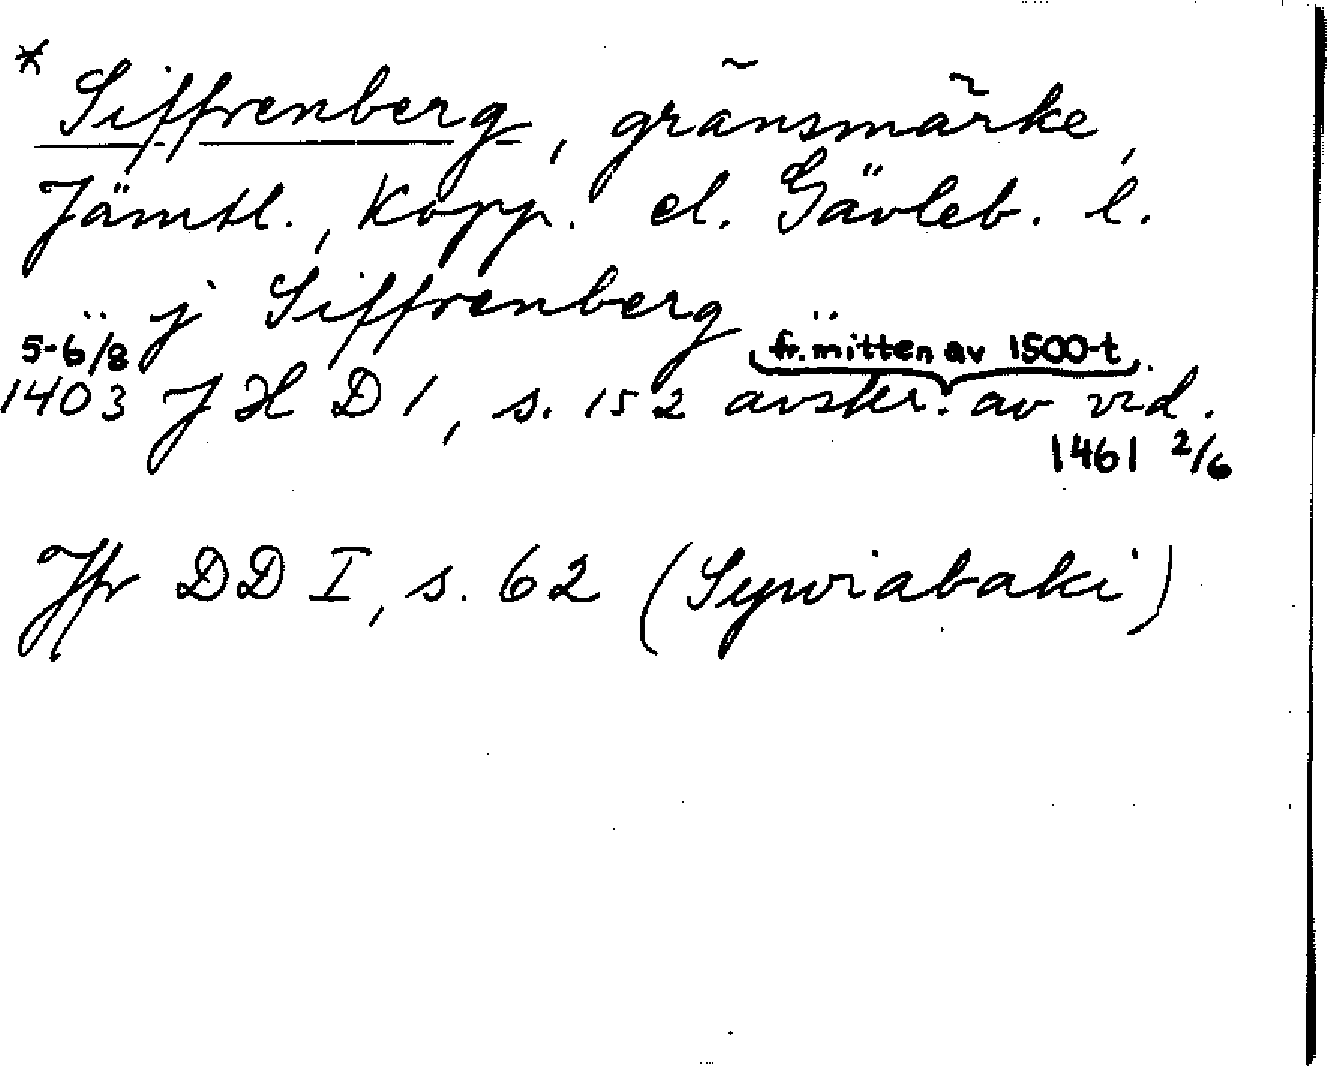 * Siffrenberg, gränsmärke,
Jämtl., Kopp. el. Gävleb. l.
j Siffrenberg
5-6/8 fr. mitten av 1500-t.
1403 JHD 1, s. 152 avskr. av vid.
1461 2/6
Jfr DD I, s. 62 (Sywiabaki)